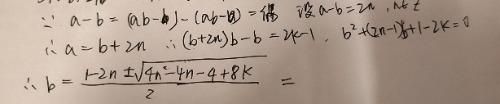 ∵ a-b=(ab-b)-(ab-a)=偶 设a-b=2n
∴ a=b+2n ∴ (b+2n)b-b=2k-1, b²+(2n-1)b+1-2k=0
∴ b=\frac{1-2n±\sqrt{4n²-4n-4+8k}}{2} =